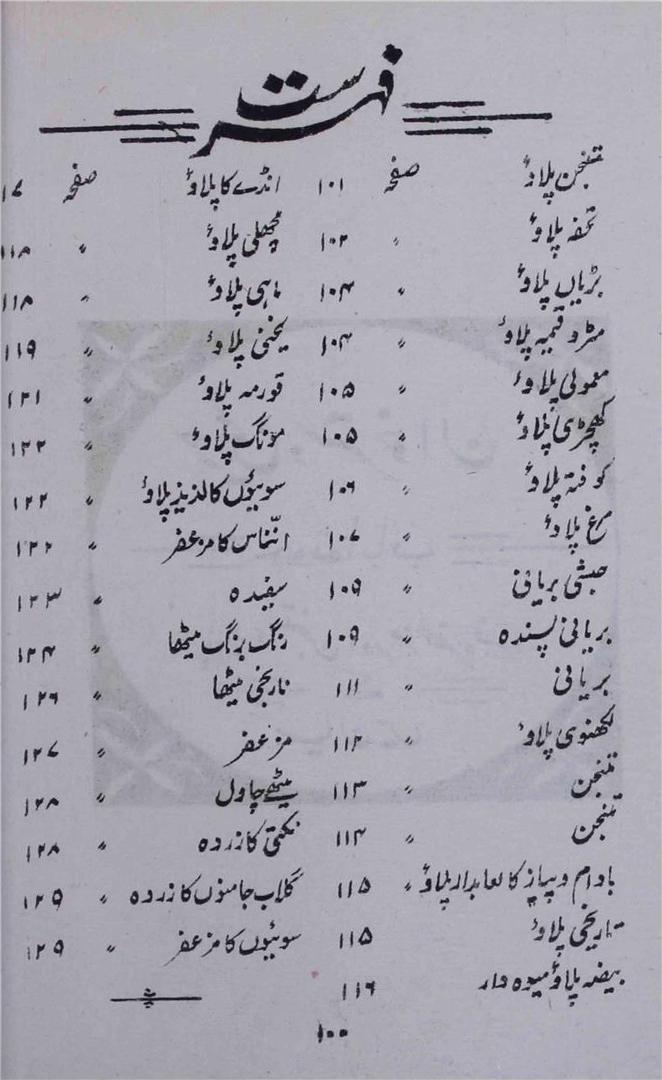 فہرست
متنجن پلاؤ صفحہ ۱۰۱
تحفہ پلاؤ " ۱۰۲
بڑیاں پلاؤ " ۱۰۴
مٹر و قیمہ پلاؤ " ۱۰۴
معمولی پلاؤ " ۱۰۵
کھچڑی پلاؤ " ۱۰۵
کوفتہ پلاؤ " ۱۰۶
مرغ پلاؤ " ۱۰۷
حبشی بریانی " ۱۰۹
بریانی پسندہ " ۱۰۹
بریانی " ۱۱۱
لکھنوی پلاؤ " ۱۱۲
متنجن " ۱۱۳
متنجن " ۱۱۴
بادام و پیاز کا لعابدار پلاؤ " ۱۱۵
نارنجی پلاؤ ۱۱۵
بیضہ پلاؤ میوہ دار ۱۱۶
انڈے کا پلاؤ صفحہ ۱۷
مچھلی پلاؤ " ۱۱۸
ماہی پلاؤ " ۱۱۸
یخنی پلاؤ " ۱۱۹
قورمہ پلاؤ " ۱۲۱
مونگ پلاؤ " ۱۲۲
سوئیوں کا لذیذ پلاؤ " ۱۲۲
انناس کا مزعفر " ۱۲۲
سفیدہ " ۱۲۳
رنگ برنگ میٹھا " ۱۲۴
نارنجی میٹھا " ۱۲۶
مزعفر " ۱۲۷
میٹھے چاول " ۱۲۸
نکتی کا زردہ " ۱۲۸
گلاب جامنوں کا زردہ " ۱۲۹
سوئیوں کا مزعفر " ۱۲۹
۱۰۰